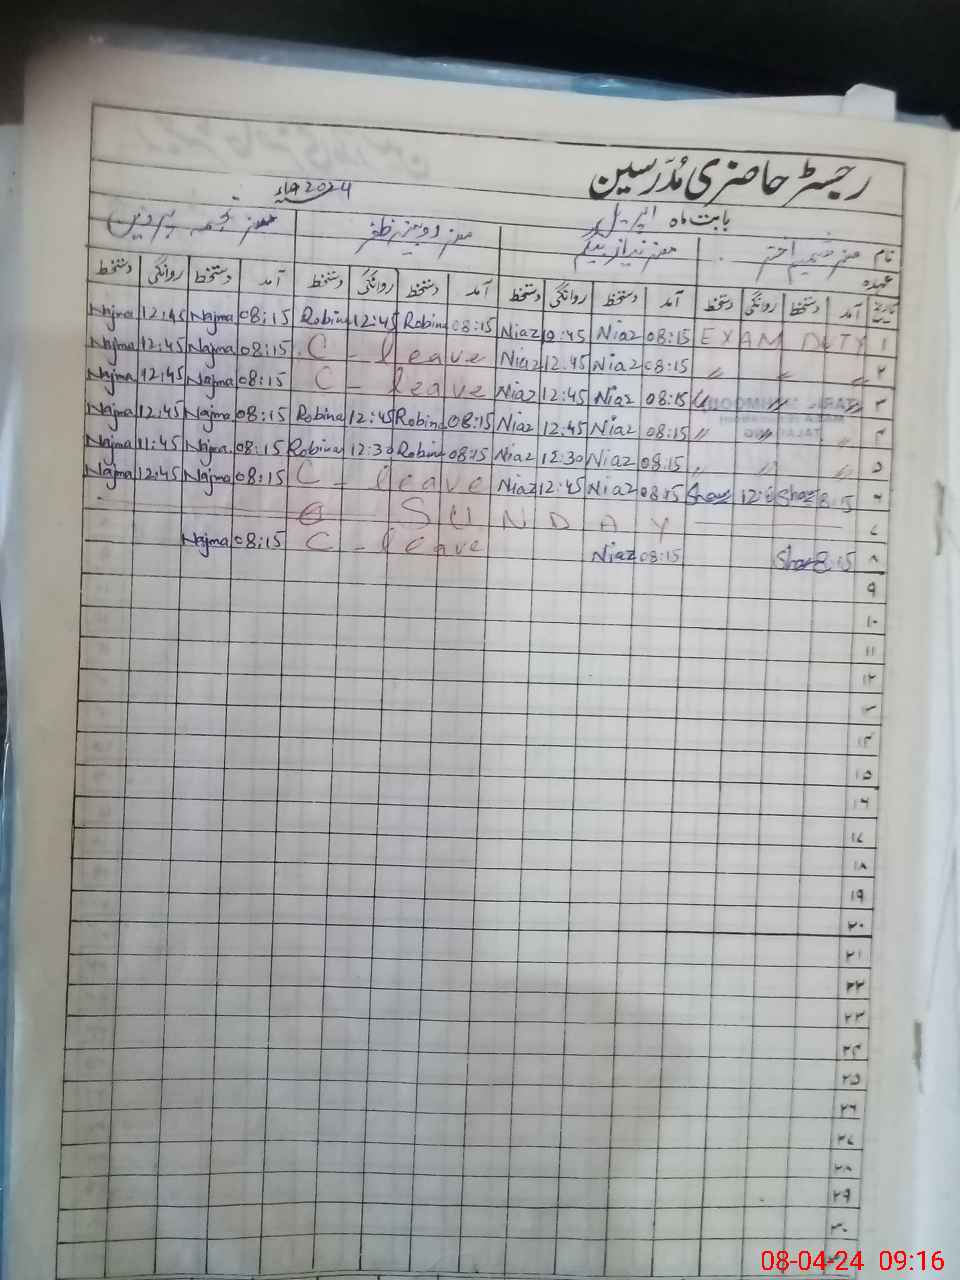 رجسٹر حاضری مُدَرسین
بابت ماہ اپریل 2024ء
نام مسز شمیم اختر مسز نیاز بیگم مسز روبینہ ظفر مسز نجمہ پروین
عہدہ
تاریخ آمد دستخط روانگی دستخط آمد دستخط روانگی دستخط آمد دستخط روانگی دستخط آمد دستخط روانگی دستخط
Najma 12:45 Najma 08:15 Robina 12:45 Robina 08:15 Niaz 12:45 Niaz 08:15 EXAM DUTY ۱
Najma 12:45 Najma 08:15 C - leave Niaz 12:45 Niaz 08:15 〃 〃 〃 ۲
Najma 12:45 Najma 08:15 C - leave Niaz 12:45 Niaz 08:15 〃 〃 〃 ۳
Najma 12:45 Najma 08:15 Robina 12:45 Robina 08:15 Niaz 12:45 Niaz 08:15 〃 〃 〃 ۴
Najma 11:45 Najma 08:15 Robina 12:30 Robina 08:15 Niaz 12:30 Niaz 08:15 〃 〃 〃 ۵
Najma 12:45 Najma 08:15 C - leave Niaz 12:45 Niaz 08:15 8:15 ۶
SUNDAY ۷
Najma 08:15 C - leave Niaz 08:15 8:15 ۸
۹
۱۰
۱۱
۱۲
۱۳
۱۴
۱۵
۱۶
۱۷
۱۸
۱۹
۲۰
۲۱
۲۲
۲۳
۲۴
۲۵
۲۶
۲۷
۲۸
۲۹
۳۰
08-04-24 09:16